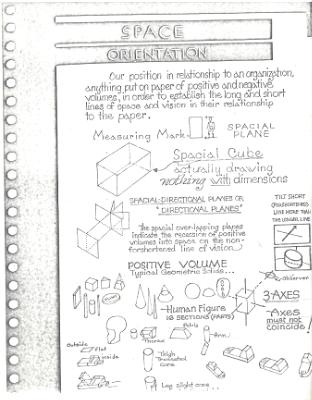 SPACE
ORIENTATION
Our position in relationship to an organization,
anything put on paper of positive and negative
volumes, in order to establish the long and short
lines of space and vision in their relationship
to the paper.
Measuring Mark
SPACIAL
PLANE
Spacial Cube
actually drawing
nothing with dimensions
SPACIAL-DIRECTIONAL PLANES OR
"DIRECTIONAL PLANES"
the spacial overlapping planes
indicate the recession of positive
volumes into space on this non-
foreshortened line of vision
TILT SHORT
LINE MORE THAN
THE LONGER LINE
Observer
POSITIVE VOLUME
Typical Geometric Solids...
3-AXES
Axes
must not
coincide!
Human Figure
18 SECTIONS (PARTS)
Pelvis
Thorax
Arm
Outside
flat
inside
Thigh
Truncated
Cone
Leg slight cone..